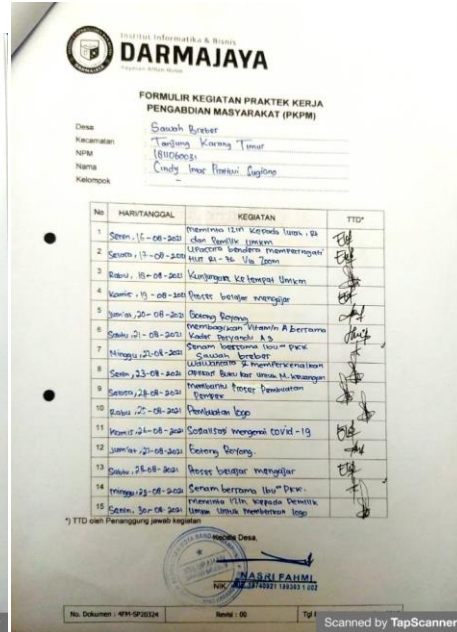 Institut Informatika & Bisnis
DARMAJAYA
Yayasan Alfian Husin
FORMULIR KEGIATAN PRAKTEK KERJA
PENGABDIAN MASYARAKAT (PKPM)
Desa Sawah Brebes
Kecamatan Tanjung Karang Timur
NPM 1811060031
Nama Cindy Imas Pratiwi Sugiono
Kelompok -
No HARI/TANGGAL KEGIATAN TTD*
1 Senin, 16-08-2021 meminta izin kepada lurah, Rt
dan Pemilik Umkm
2 Selasa, 17-08-2021 Upacara bendera memperingati
HUT RI-76 Via Zoom
3 Rabu, 18-08-2021 Kunjungan Ke tempat Umkm
4 Kamis, 19-08-2021 Proses belajar mengajar
5 Jum'at, 20-08-2021 Gotong Royong
6 Sabtu, 21-08-2021 membagikan Vitamin A bersama
Kader Posyandu
7 Minggu, 22-08-2021 Senam bersama Ibu" PKK
Sawah brebes
8 Senin, 23-08-2021 Wawancara & memperkenalkan
aplikasi Buku kas untuk M. keuangan
9 Selasa, 24-08-2021 Membantu Proses Pembuatan
Pempek
10 Rabu, 25-08-2021 Pembuatan logo
11 Kamis, 26-08-2021 Sosialisasi mengenai covid-19
12 Jum'at, 27-08-2021 Gotong Royong.
13 Sabtu, 28-08-2021 Proses belajar mengajar
14 minggu, 29-08-2021 Senam bersama Ibu" PKK.
15 Senin, 30-08-2021 meminta izin kepada Pemilik
Umkm Untuk memberikan logo
*) TTD oleh Penanggung jawab kegiatan
Kepala Desa,
NASRI FAHMI
NIK.
No. Dokumen : 4FM-SP20324 Revisi : 00 Tgl
Scanned by TapScanner